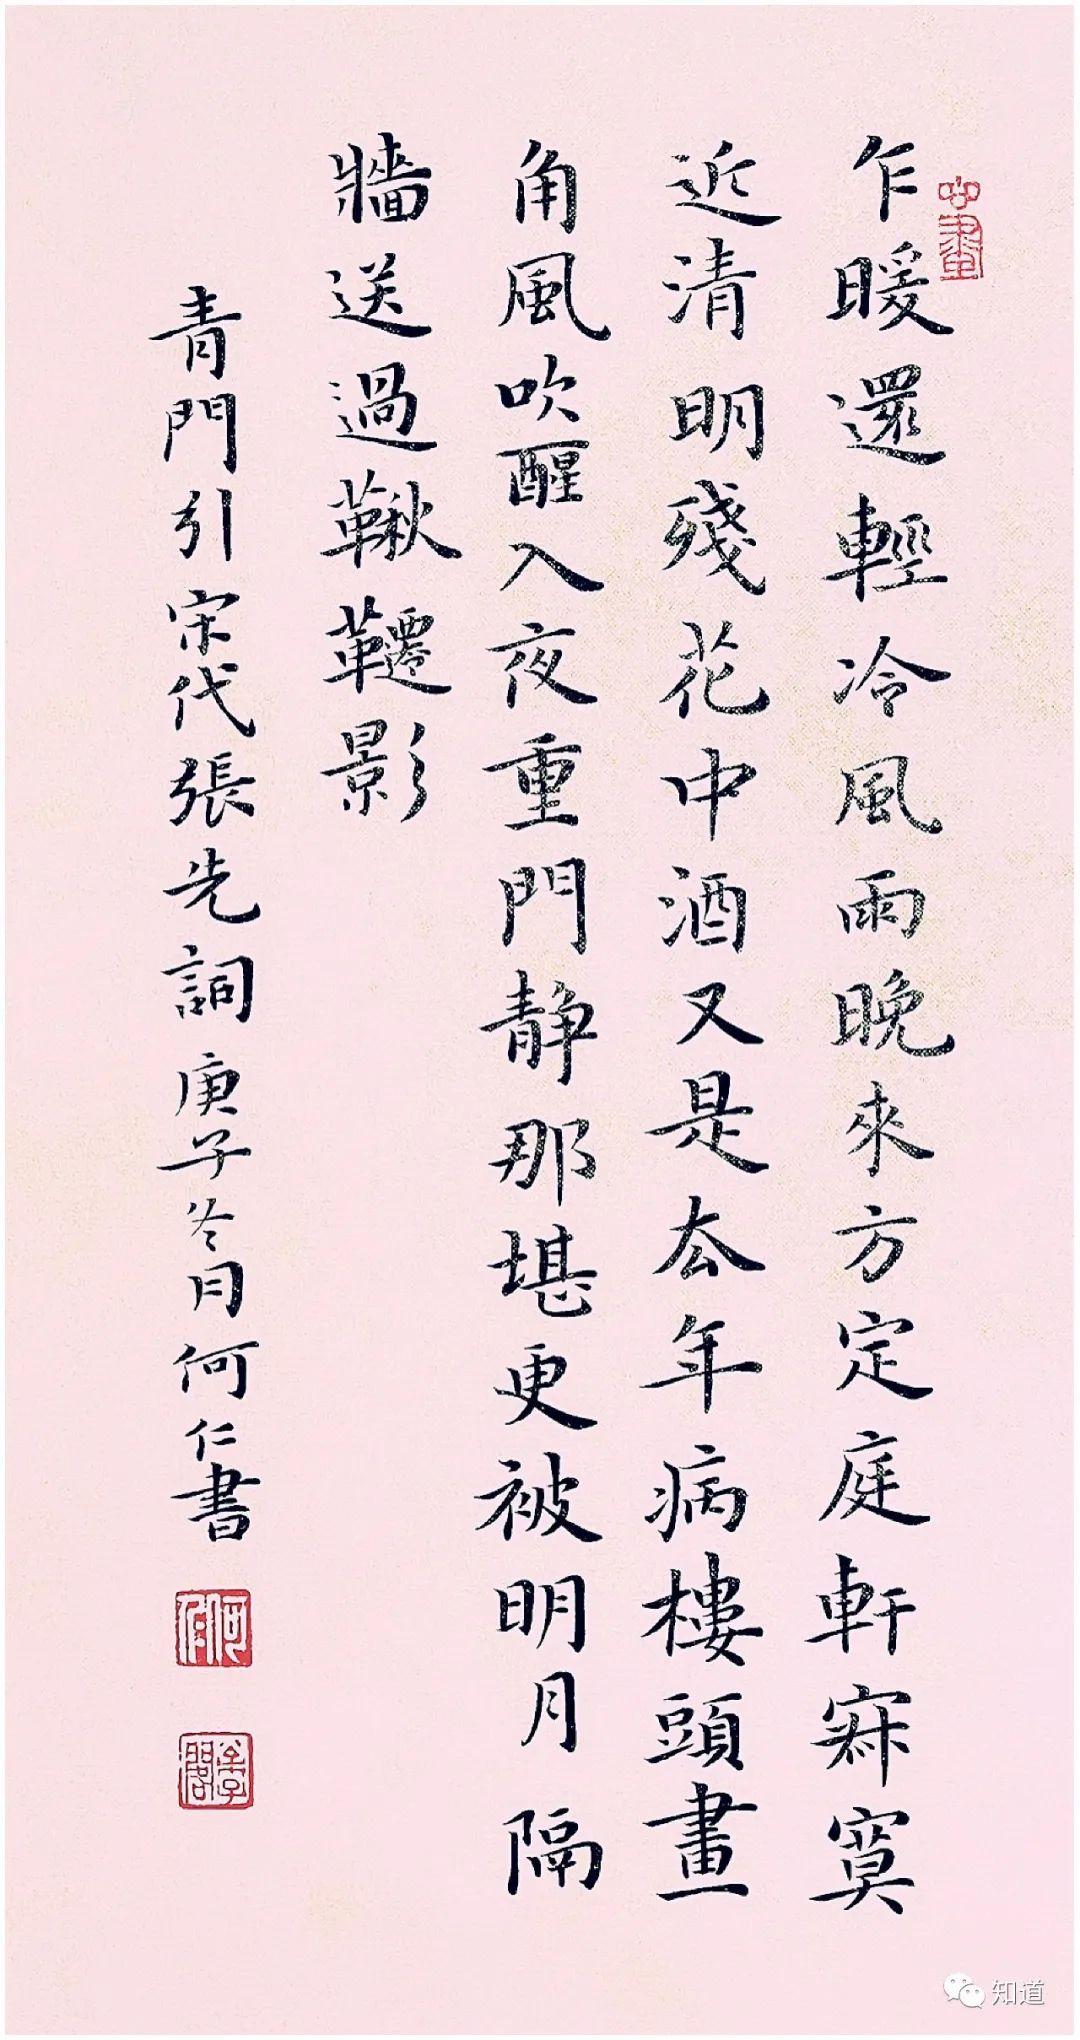 乍暖還輕冷風雨晚來方定庭軒寂寞
近清明殘花中酒又是去年病樓頭畫
角風吹醒入夜重門静那堪更被明月隔
牆送過鞦韆影
青門引宋代張先詞庚子冬月何仁書
心畫
知道